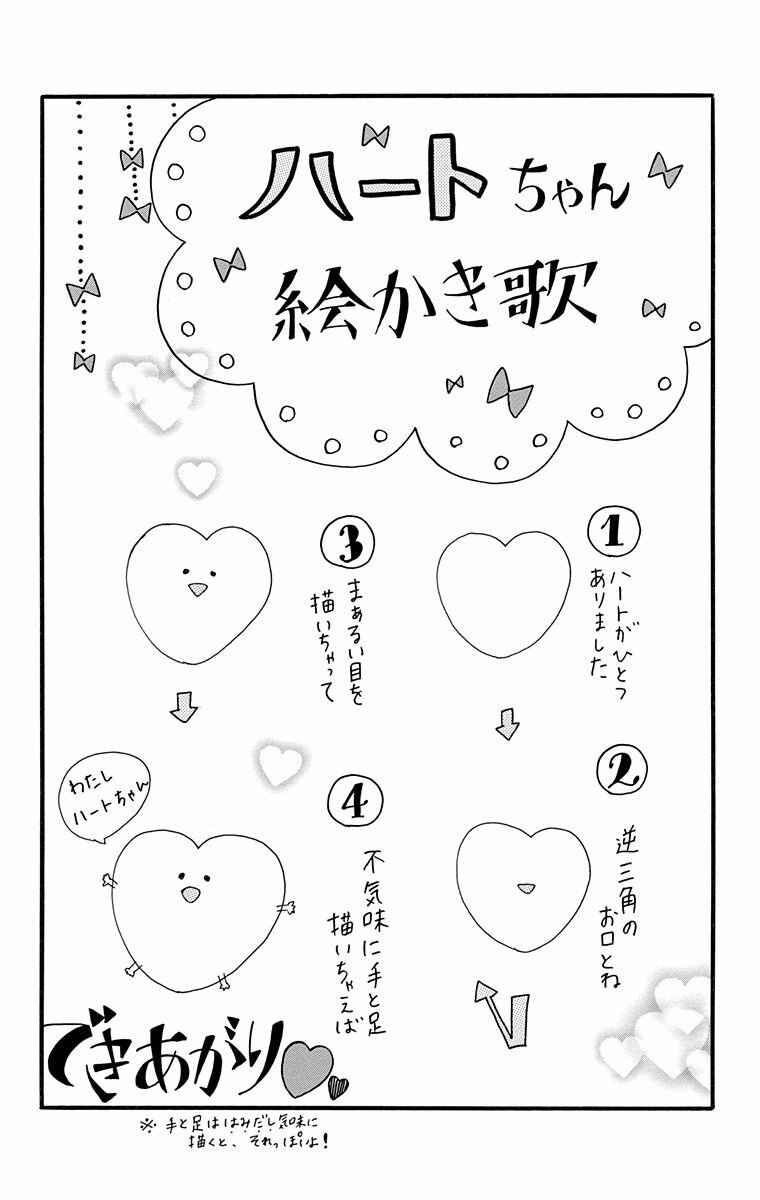 ハートちゃん
絵かき歌
1
ハートがひとつ
ありました
2
逆三角の
お口とね
3
まぁるい目を
描いちゃって
4
不気味に手と足
描いちゃえば
わたし
ハートちゃん
できあがり
※手と足ははみだし気味に
描くと、それっぽいよ！